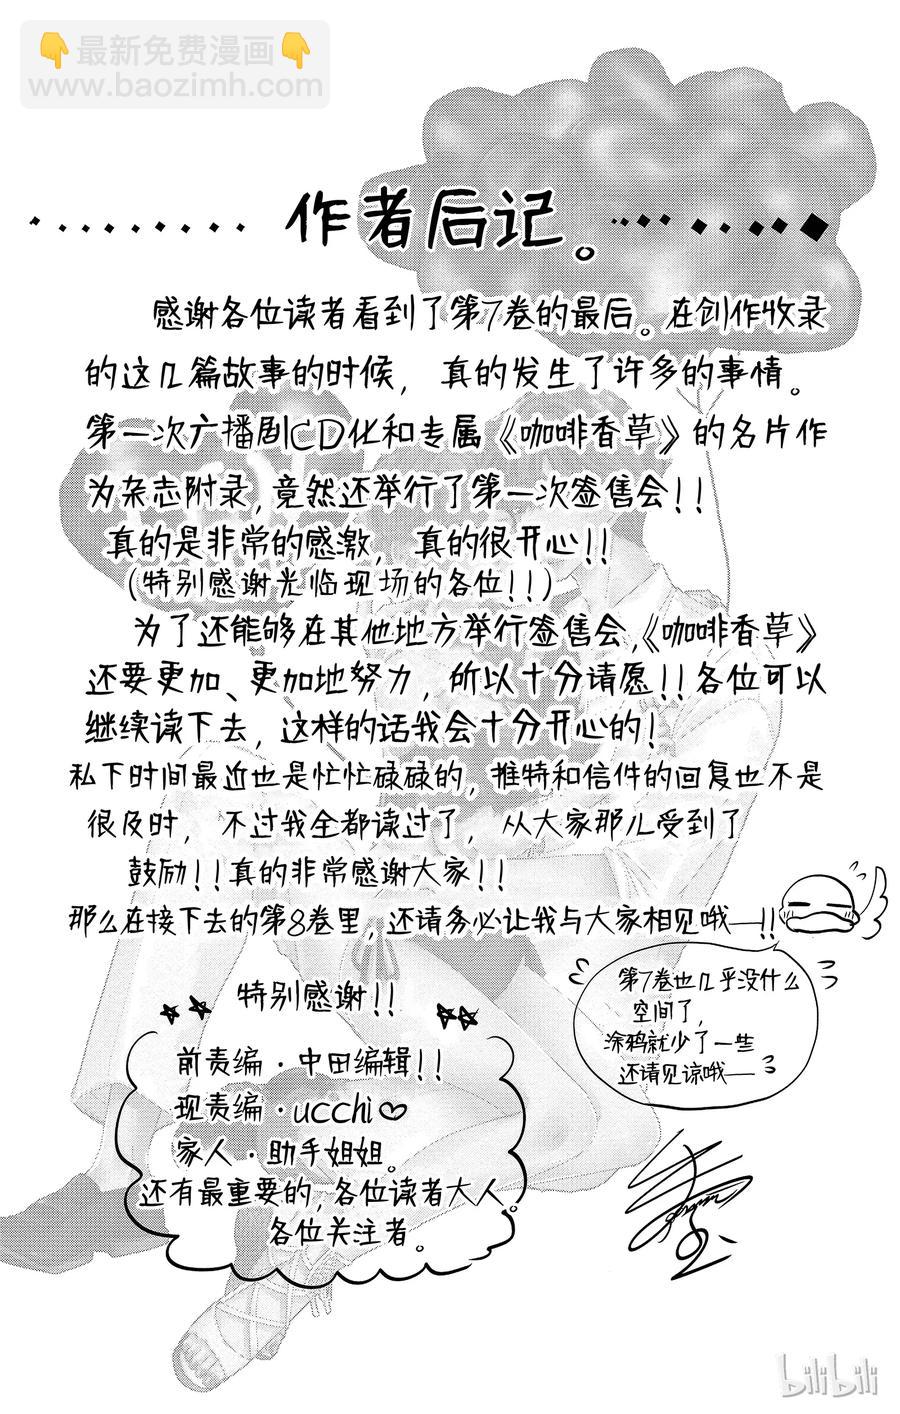 最新免费漫画
www.baozimh.com
作者后记。
感谢各位读者看到了第7卷的最后。在创作收录
的这几篇故事的时候，真的发生了许多的事情。
第一次广播剧CD化和专属《咖啡香草》的名片作
为杂志附录，竟然还举行了第一次签售会!!
真的是非常的感激，真的很开心!!
(特别感谢光临现场的各位!!)
为了还能够在其他地方举行签售会，《咖啡香草》
还要更加、更加地努力，所以十分请愿!!各位可以
继续读下去，这样的话我会十分开心的!
私下时间最近也是忙忙碌碌的，推特和信件的回复也不是
很及时，不过我全都读过了，从大家那儿受到了
鼓励!!真的非常感谢大家!!
那么在接下去的第8卷里，还请务必让我与大家相见哦——!!
第7卷也几乎没什么
空间了，
涂鸦就少了一些
还请见谅哦——
特别感谢!!
前责编·中田编辑!!
现责编·ucchi♡
家人·助手姐姐。
还有最重要的，各位读者大人。
各位关注者。
bilibili